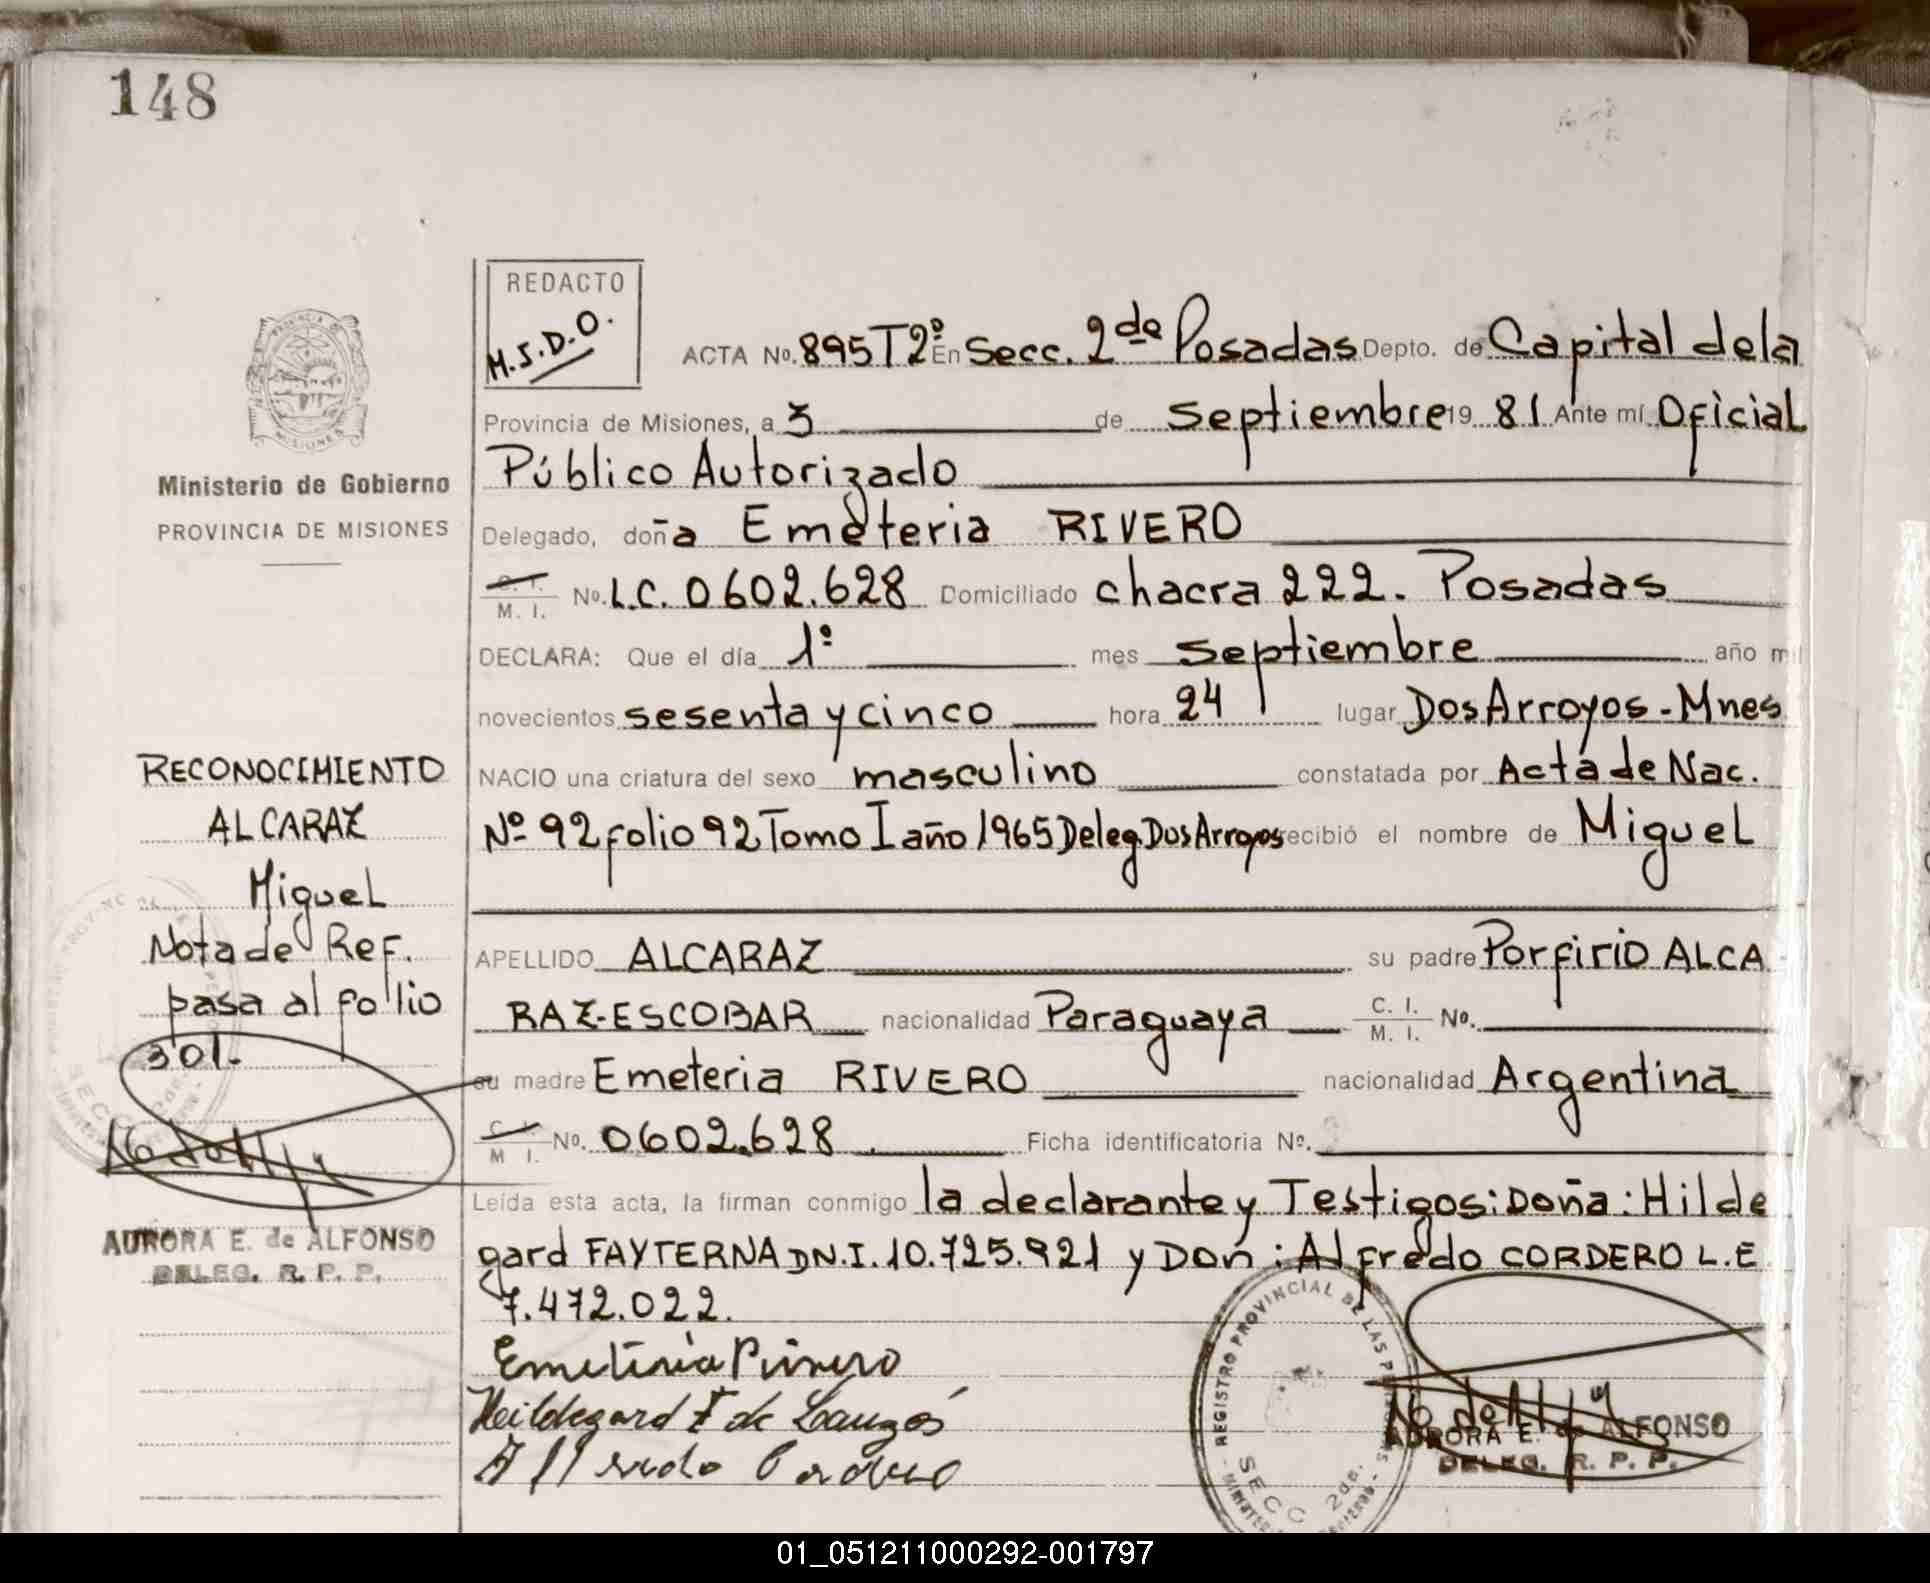 148
REDACTO
M.S.D.O.
ACTA No. 895 T2º En Secc. 2da Posadas Depto. de Capital dela
Provincia de Misiones, a 3 de septiembre 19 81 Ante mí Oficial
Público Autorizado
Delegado, doña Emeteria RIVERO
C. I.
M. I. No. L.C. 0602.628 Domiciliado chacra 222. Posadas
DECLARA: Que el día 1º mes septiembre año mil
novecientos sesenta y cinco hora 24 lugar Dos Arroyos - Mnes
NACIO una criatura del sexo masculino constatada por Acta de Nac.
Nº 92 folio 92 Tomo I año 1965 Deleg. Dos Arroyos recibió el nombre de Miguel
APELLIDO ALCARAZ su padre Porfirio ALCA
RAZ-ESCOBAR nacionalidad Paraguaya C. I.
M. I. No.
su madre Emeteria RIVERO nacionalidad Argentina
C. I.
M I. No. 0602.628 Ficha identificatoria Nº.
Leída esta acta, la firman conmigo la declarante y Testigos: Doña: Hilde
gard FAYTERNA DN.I. 10.725.921 y Don: Alfredo CORDERO L.E
7.472.022.
Emeteria Rivero
Heildegard F de
Alfredo Cordero
REGISTRO PROVINCIAL DE LAS
SECC 2da.
AURORA E. de ALFONSO
DELEG. R. P. P.
PROVINCIA DE
MISIONES
Ministerio de Gobierno
PROVINCIA DE MISIONES
RECONOCIMIENTO
ALCARAZ
Miguel
Nota de Ref.
pasa al folio
301.-
SECC 2da.
AURORA E. de ALFONSO
DELEG. R. P. P.
01_051211000292-001797